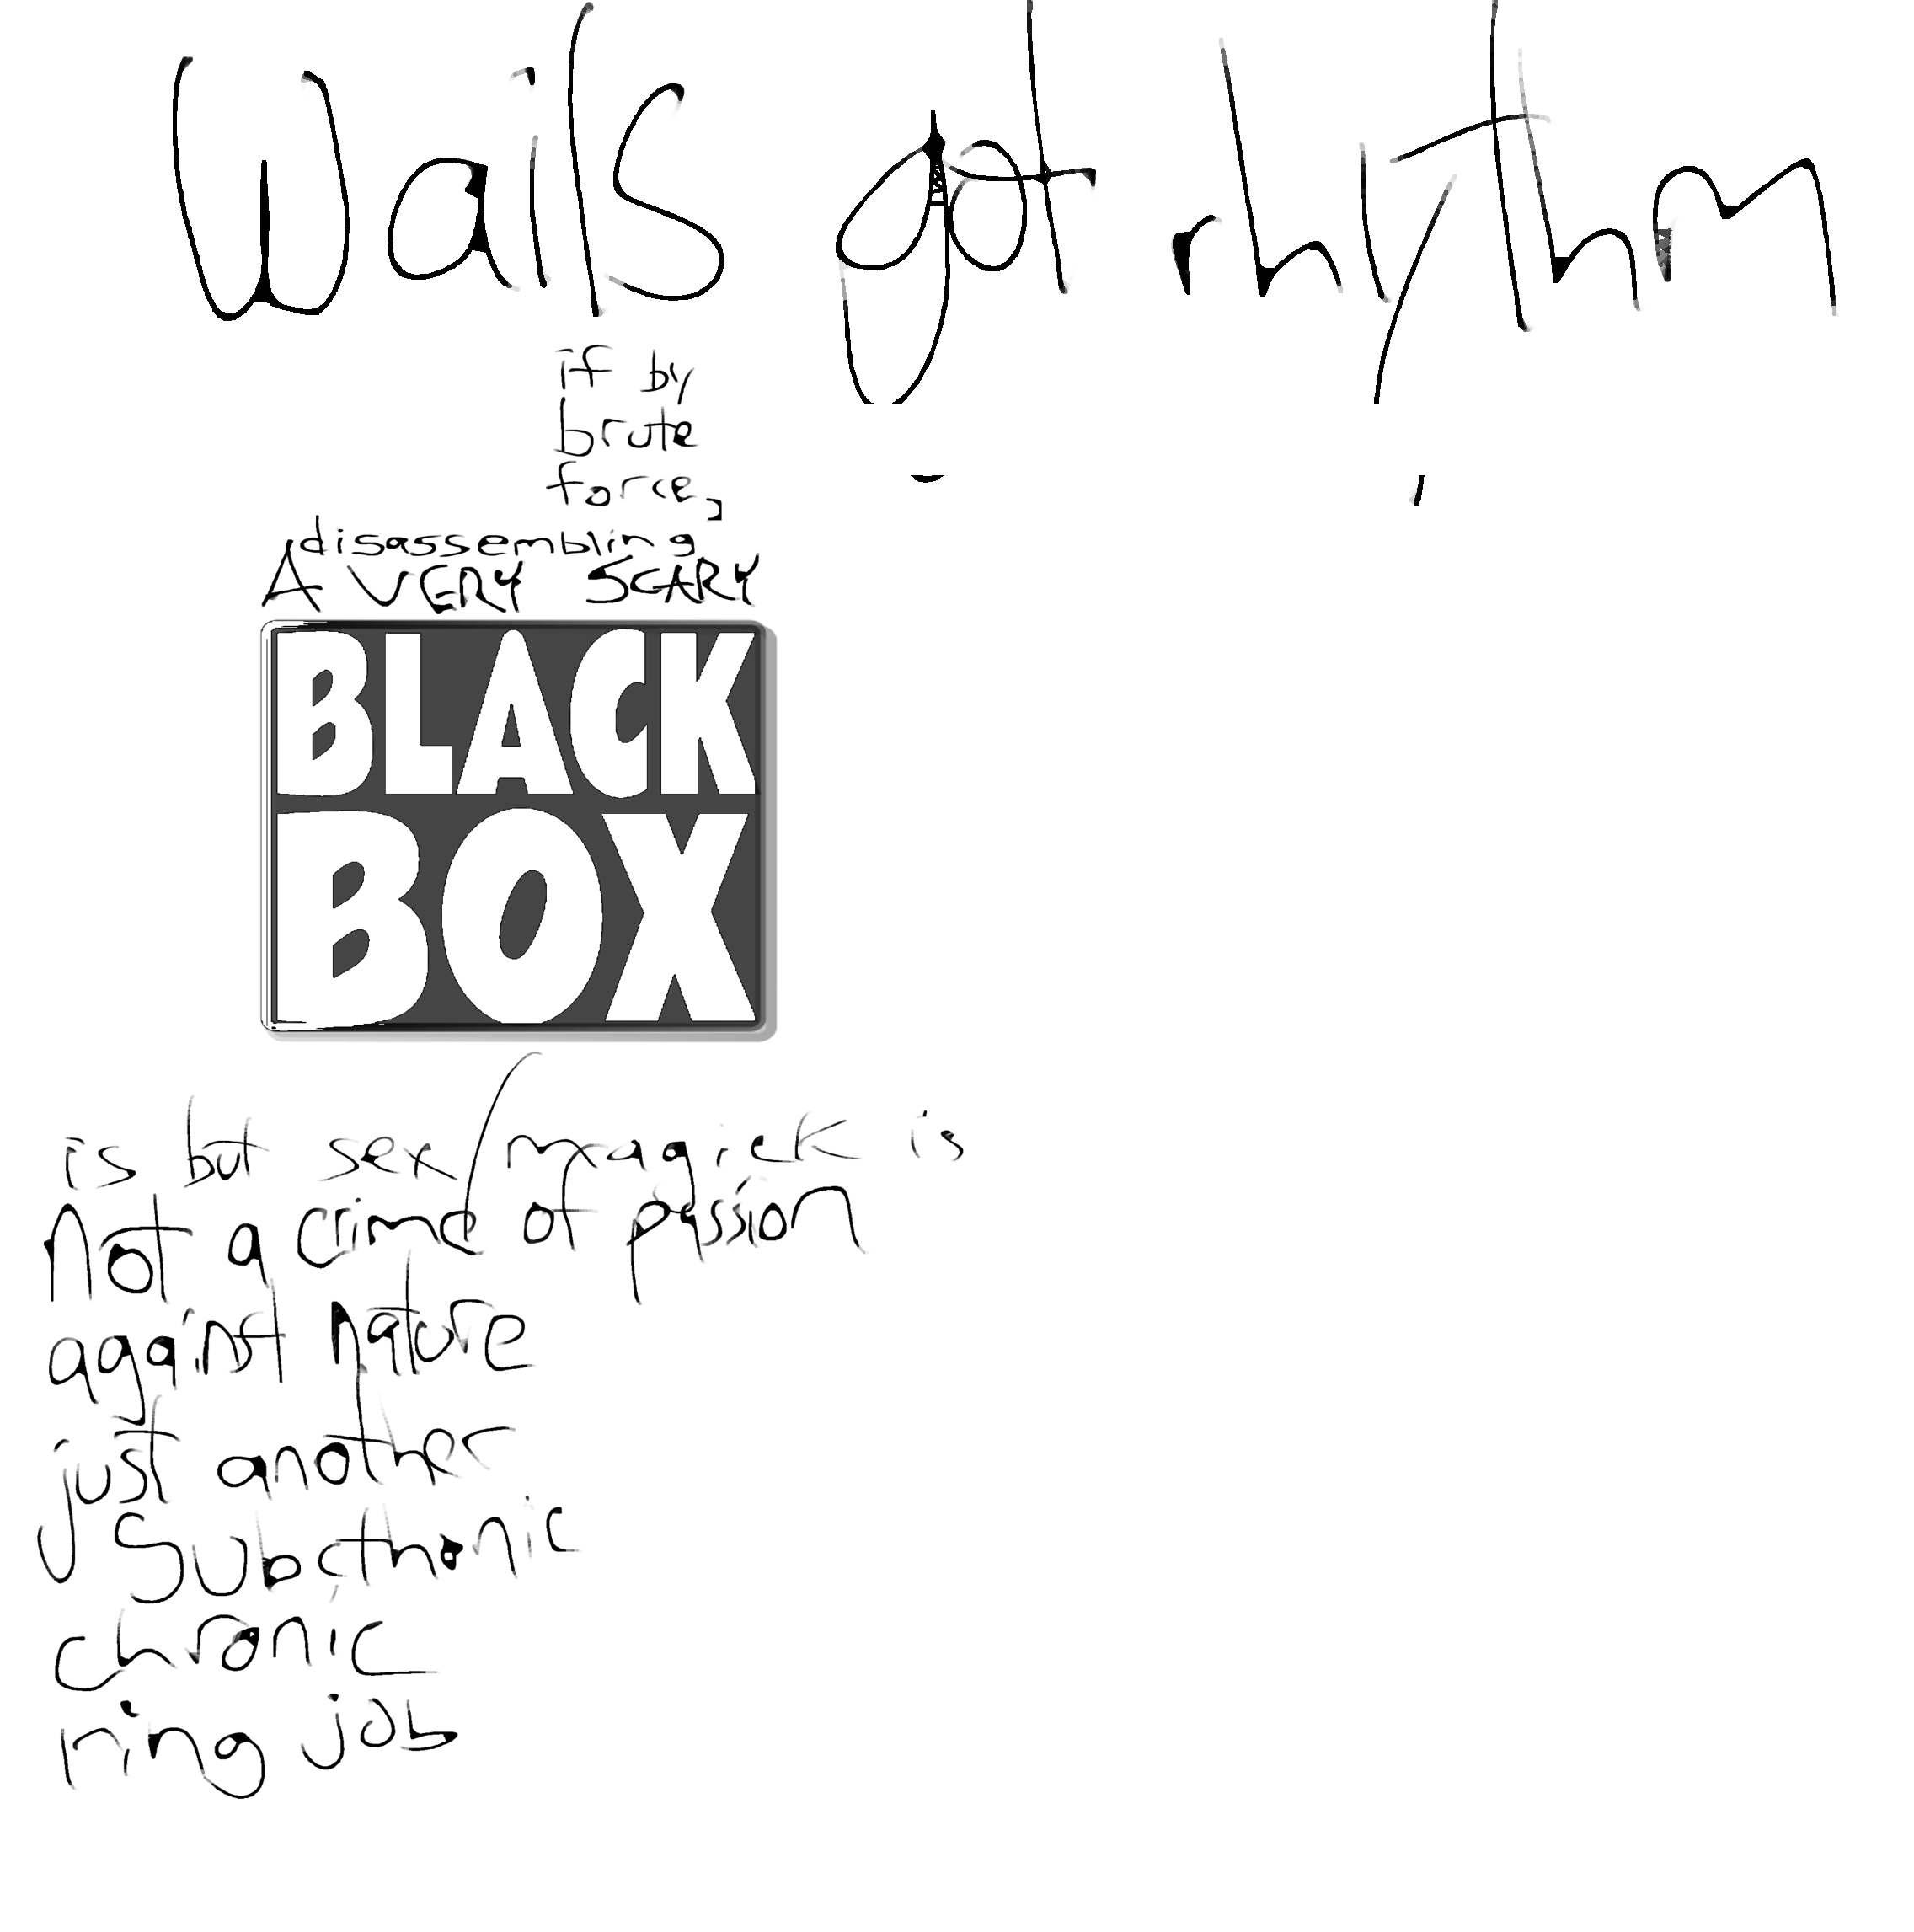 Wails got rhythm
if by
brute
force,
disassembling
A VERY SCARY
BLACK
BOX
is but sex/mxagick is
not a crime of passion
against nature
just another
Subcthonic
chronic
ring job